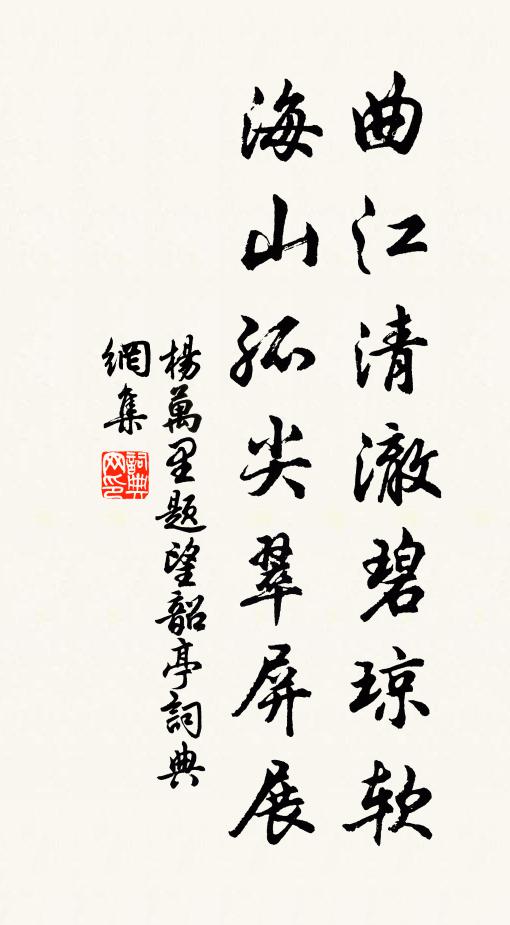 曲江清澈碧琼软
海山孤尖翠屏展
楊萬里题望韶亭詞典
網集
詞典网印